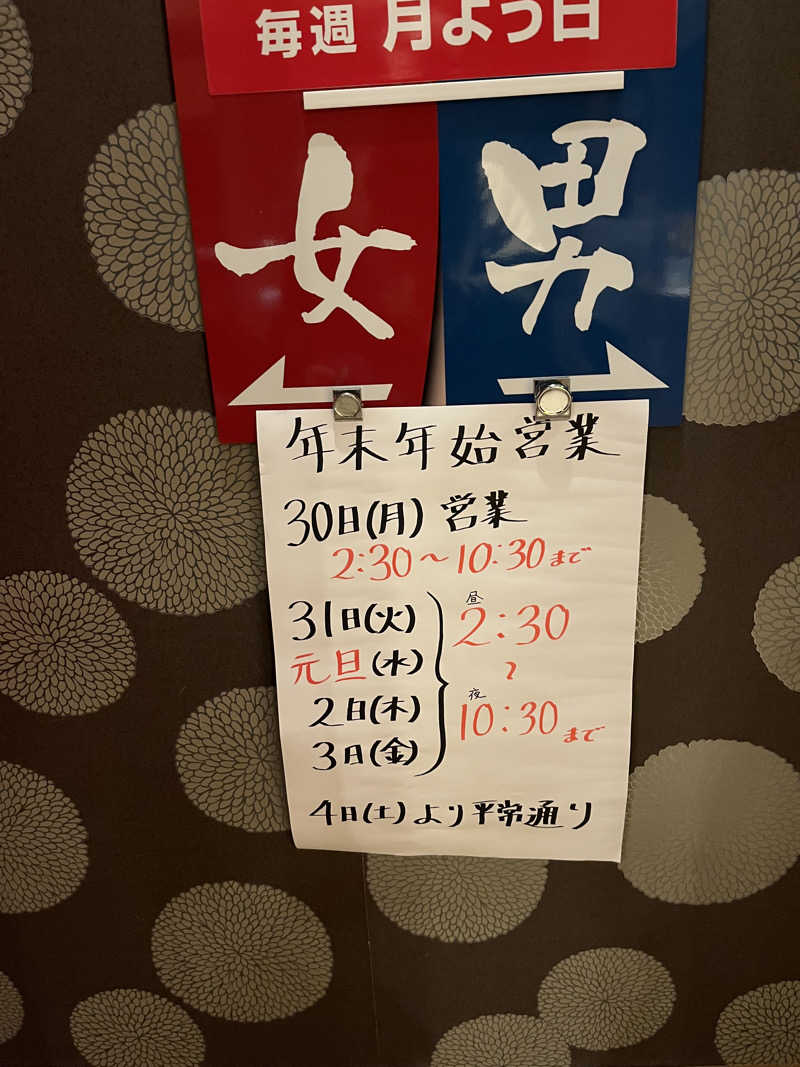 毎週 月よう日
女 男
年末年始営業
30日(月) 営業
2:30〜10:30まで
31日(火)
元旦(水)
2日(木)
3日(金)
昼
2:30
〜
夜
10:30まで
4日(土)より平常通り